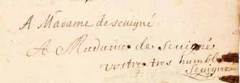 A Madame de sevigné
A Madame de sevigné
vostre tres humble
Sevigné